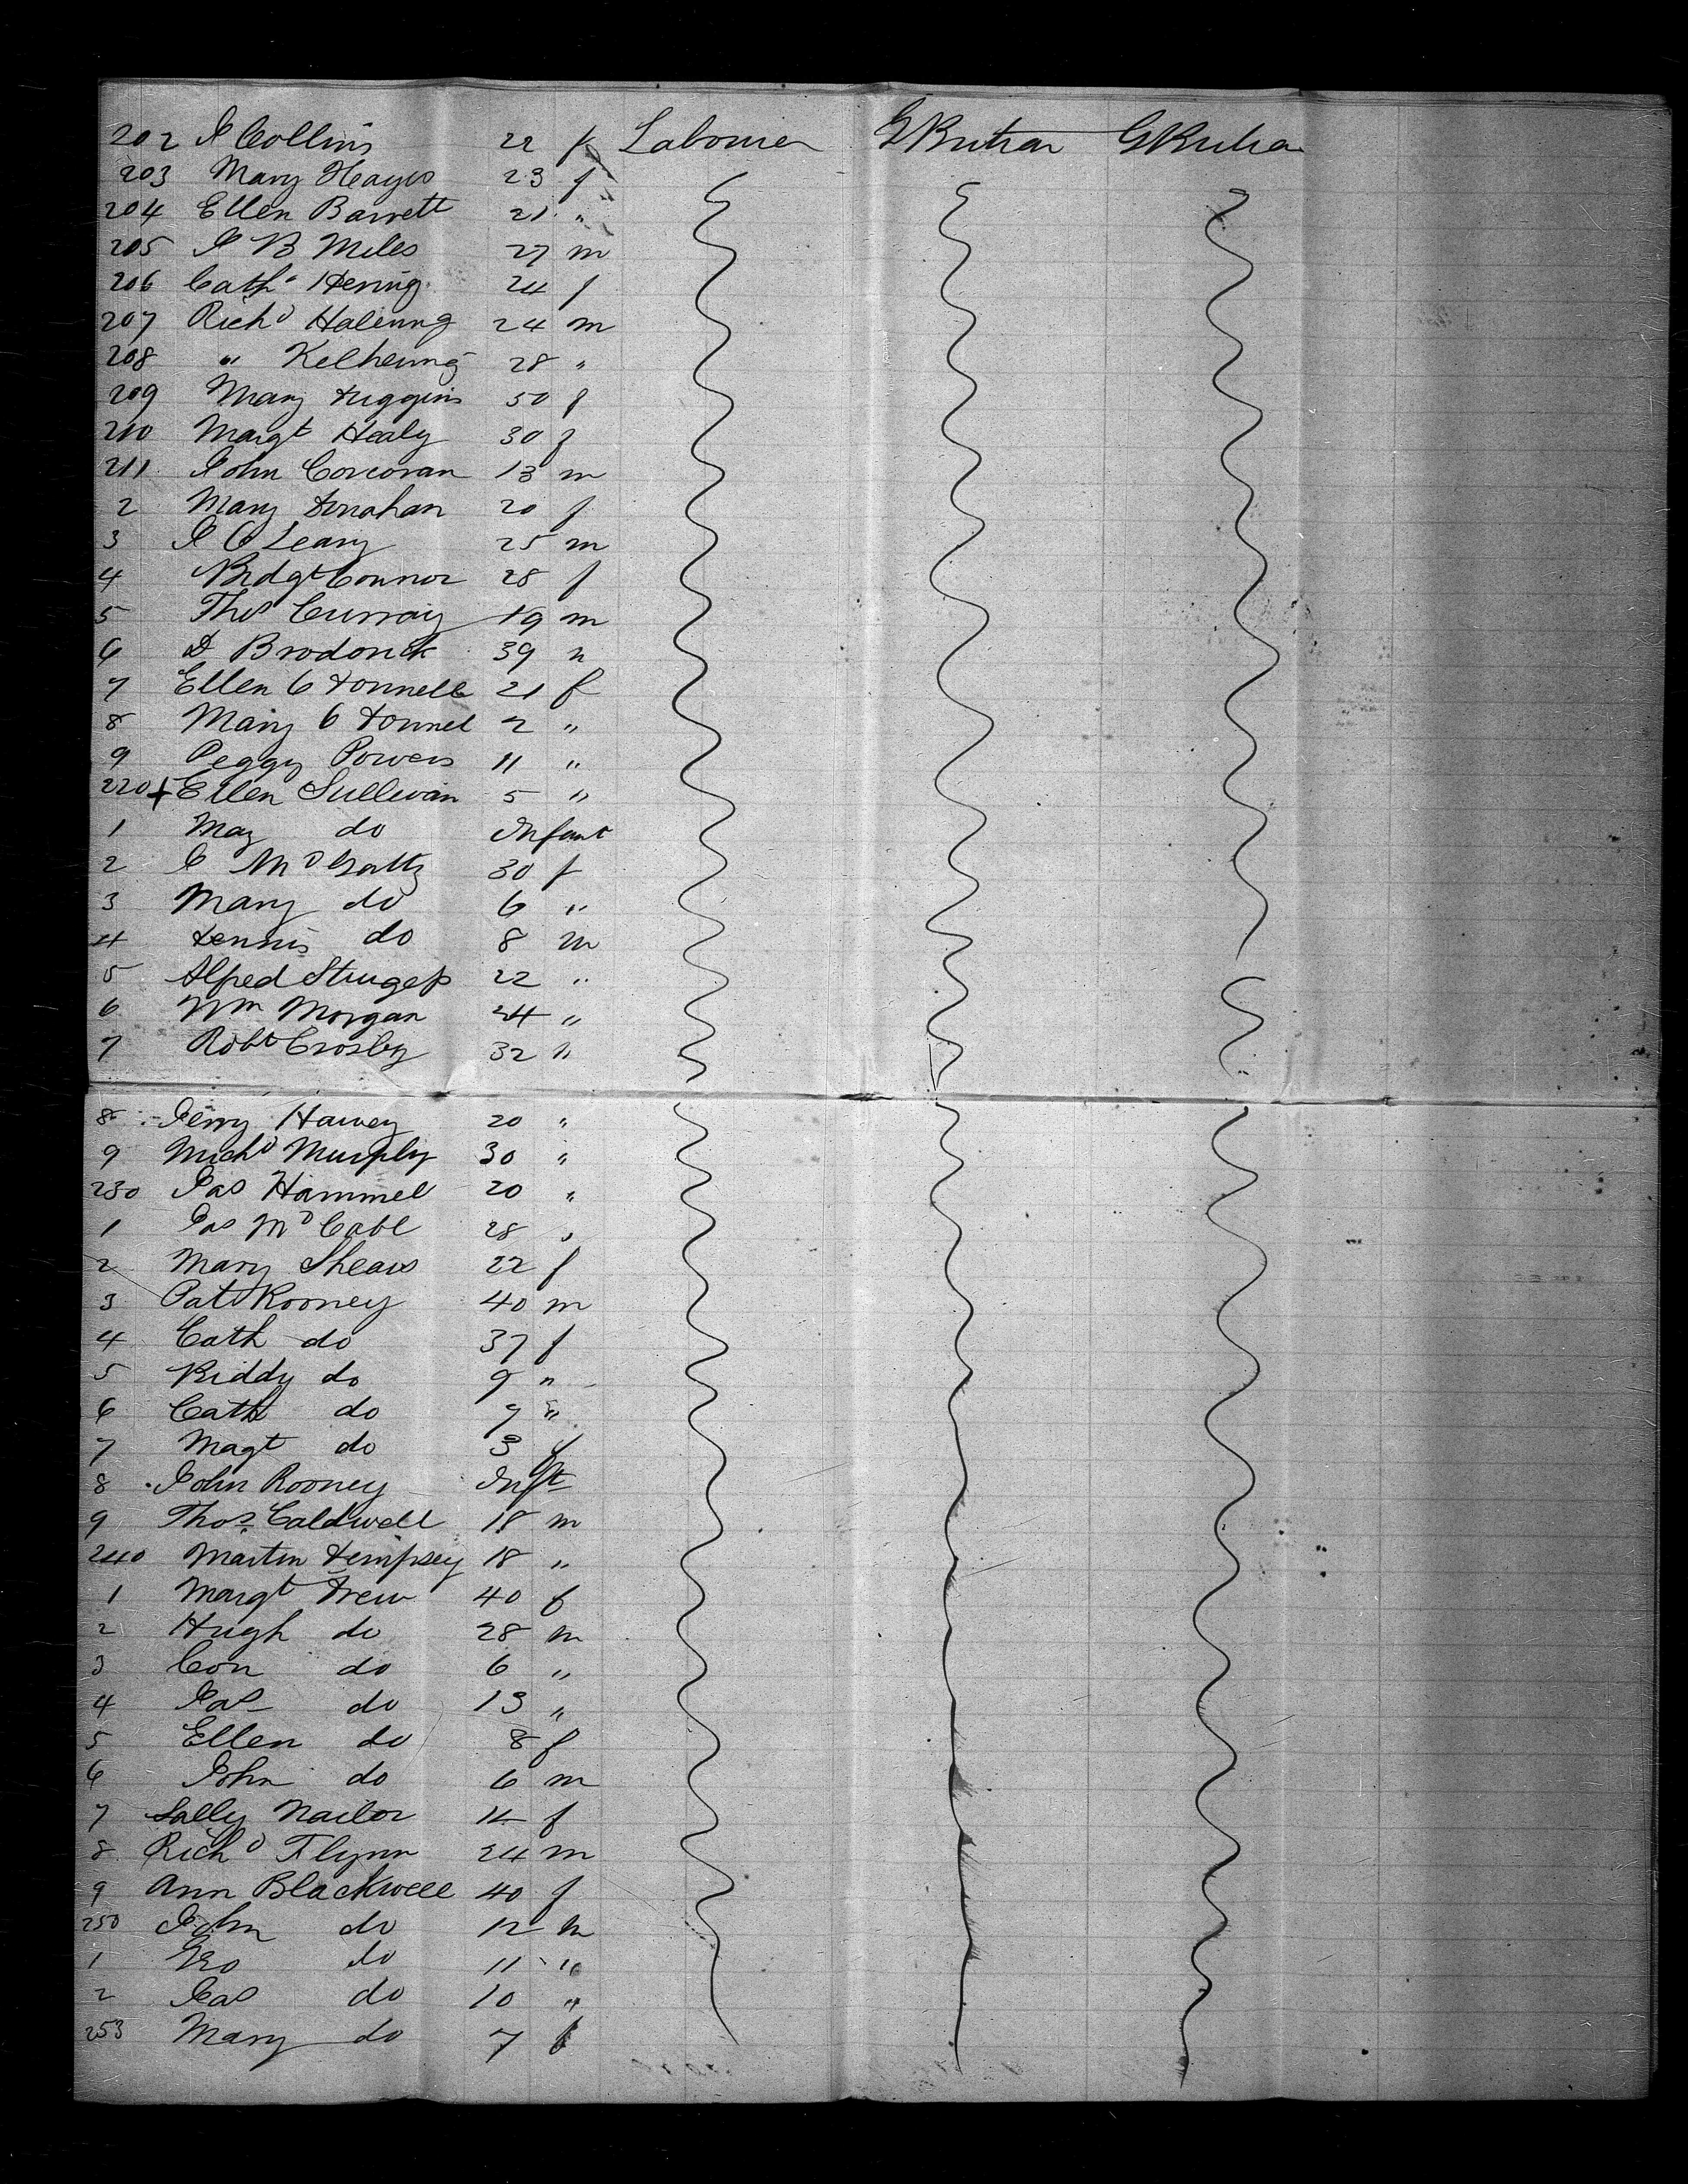 202 J Collins 22 f Labourer G Britain G Britain
203 Mary Hayes 23 f
204 Ellen Barrett 21 "
205 J B Miles 27 m
206 Cath Hering 24 f
207 Richd 24 m
208 " 28 "
209 Mary Higgins 50 f
210 Margt Healy 30 f
211 John Corcoran 13 m
2 Mary Donahan 20 f
3 J O Leary 25 m
4 Bridgt Connor 28 f
5 Thos Curray 19 m
6 D Brodorick 39 "
7 Ellen O Donnell 21 f
8 Mary O Donnel 2 "
9 Peggy Powers 11 "
220 + Ellen Sullivan 5 "
1 May do Infant
2 30 f
3 Mary do 6 "
4 Dennis do 8 m
5 Alfred Sturgess 22 "
6 Wm Morgan 24 "
7 Robt Crosby 32 "
8 Jerry Harvey 20 "
9 Michl Murphy 30 "
230 Jas Hammel 20 "
1 Jas McCabe 28 "
2 Mary Shears 22 f
3 Pat Rooney 40 m
4 Cath do 37 f
5 Biddy do 9 "
6 Cath do 7 "
7 Magt do 3 f
8 John Rooney Inft
9 Thos Caldwell 18 m
240 Martin Dempsey 18 "
1 Margt Drew 40 f
2 Hugh do 28 m
3 Con do 6 "
4 Jas do 13 "
5 Ellen do 8 f
6 John do 6 m
7 Sally Nailor f
8 Richd Flynn 24 m
9 Ann Blackwell 40 f
250 John do 12 m
1 Geo do 11 "
2 Jas do 10 "
253 Mary do 7 f